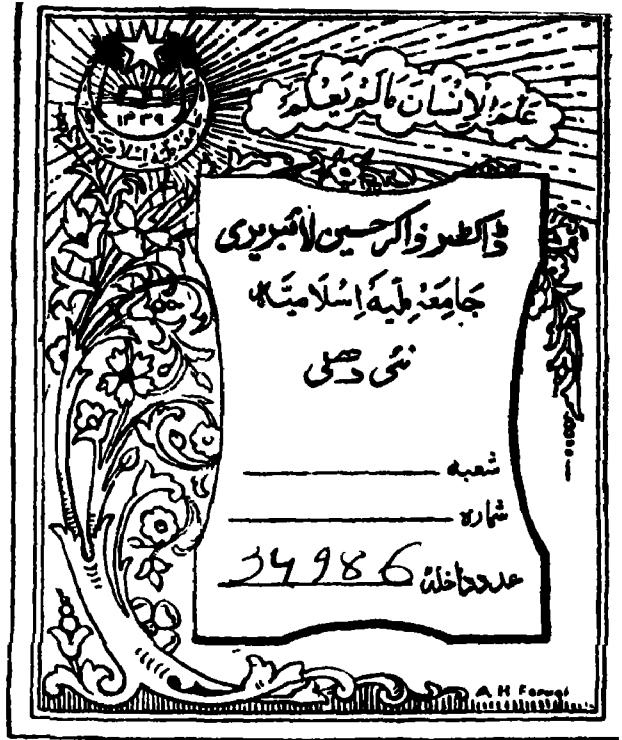 عَلَّمَ الْإِنْسَانَ مَا لَمْ يَعْلَمْ
۱۳۳۹
ڈاکٹر ذاکر حسین لائبریری
جَامِعَہ مِلّیَہ اِسْلَامیَہ
نئی دھلی
شعبہ
شمارہ
عدد داخلہ 34986
A H Farugi